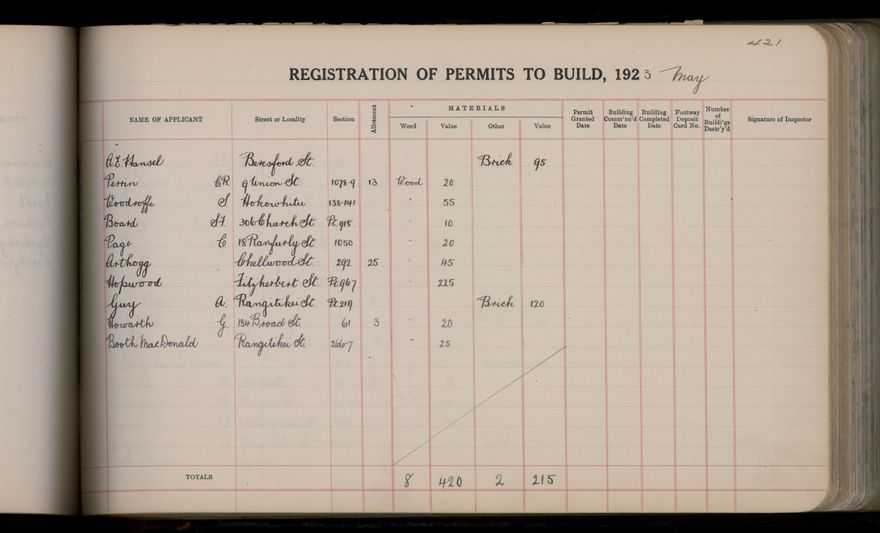 421
REGISTRATION OF PERMITS TO BUILD, 1923 May
NAME OF APPLICANT Street or Locality Section Allotment MATERIALS Wood Value Other Value Permit Granted Date Building Comm'nc'd Date Building Completed Date Footway Deposit Card No. Number of Build'gs Destr'y'd Signature of Inspector
A.E. Hansel Beresford St. Brick 95
Perrin C.R. 9 Union St. 1078-9 13 Wood 20
Woodroffe S Hokowhitu 138-141 " 55
Board S.F. 306 Church St. Pt 918 " 10
Page C 18 Ranfurly St. 1050 " 20
Arthogg Chellwood St. 292 25 " 45
Hopwood Fitzherbert St. Pt 967 " 225
Guy A. Rangitikei St. Pt 219 Brick 120
Howarth G. 134 Broad St. 61 3 " 20
Booth MacDonald Rangitikei St. " 25
TOTALS 8 420 2 215